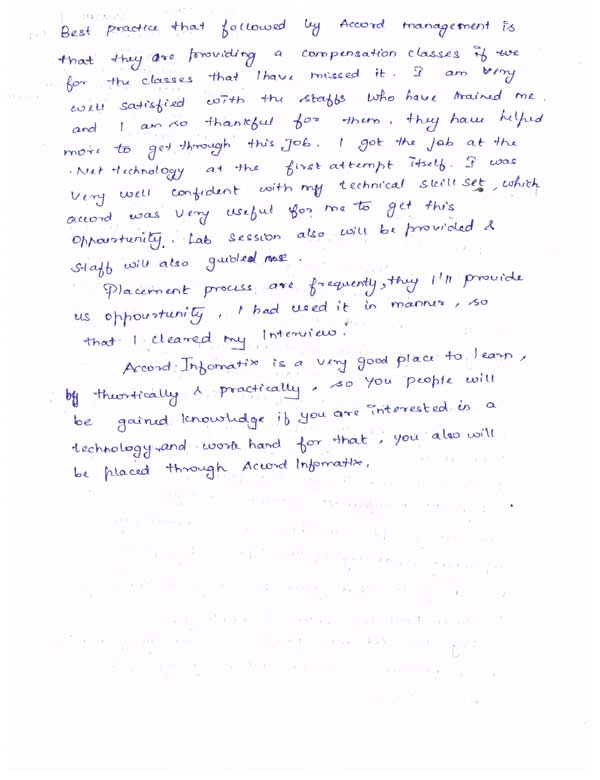 Best practice that followed by Accord management is
that they are providing a compensation classes if we
for the classes that I have missed it. I am very
well satisfied with the staffs who have trained me.
and I am so thankful for them, they have helped
more to get through this Job. I got the job at the
.Net technology at the first attempt itself. I was
very well confident with my technical skill set, which
accord was very useful for me to get this
oppourtunity. Lab session also will be provided &
staff will also guided me.
Placement process are frequently, they I'll provide
us oppourtunity, I had used it in manner, so
that I cleared my Interview.
Accord Infomatix is a very good place to learn,
by theortically & practically, so you people will
be gained knowledge if you are interested in a
technology and work hard for that, you also will
be placed through Accord Infomatix.